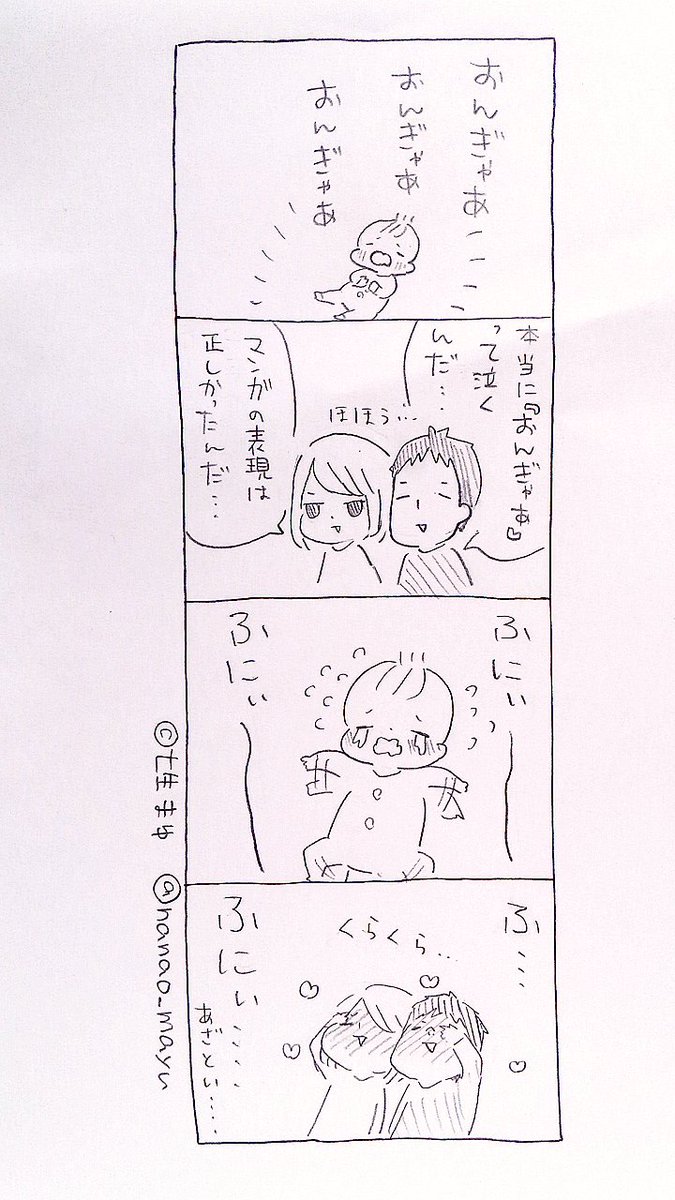 おんぎゃあ
おんぎゃあ
おんぎゃあ
本当に『おんぎゃあ』
って泣く
んだ…
ほほう…
マンガの表現は
正しかったんだ…
ふにぃ
ふにぃ
ふ…
くらくら…
ふにぃ……
あざとい……
©七生まゆ @nanao_mayu